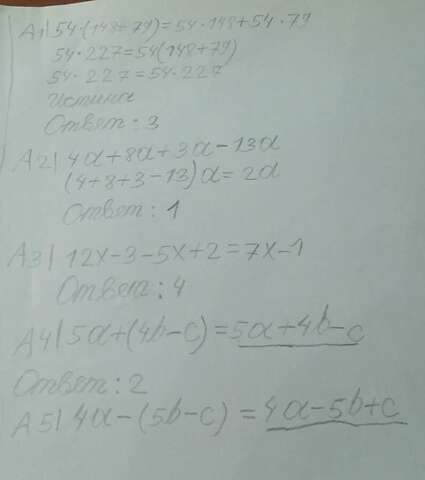 А1| 54·(148+79)=54·148+54·79
54·227=54(148+79)
54·227=54·227
Истина
Ответ: 3
А2| 4a+8a+3a-13a
(4+8+3-13)a=2a
Ответ: 1
А3| 12x-3-5x+2=7x-1
Ответ: 4
А4| 5a+(4b-c)=5a+4b-c
Ответ: 2
А5| 4a-(5b-c)=4a-5b+c